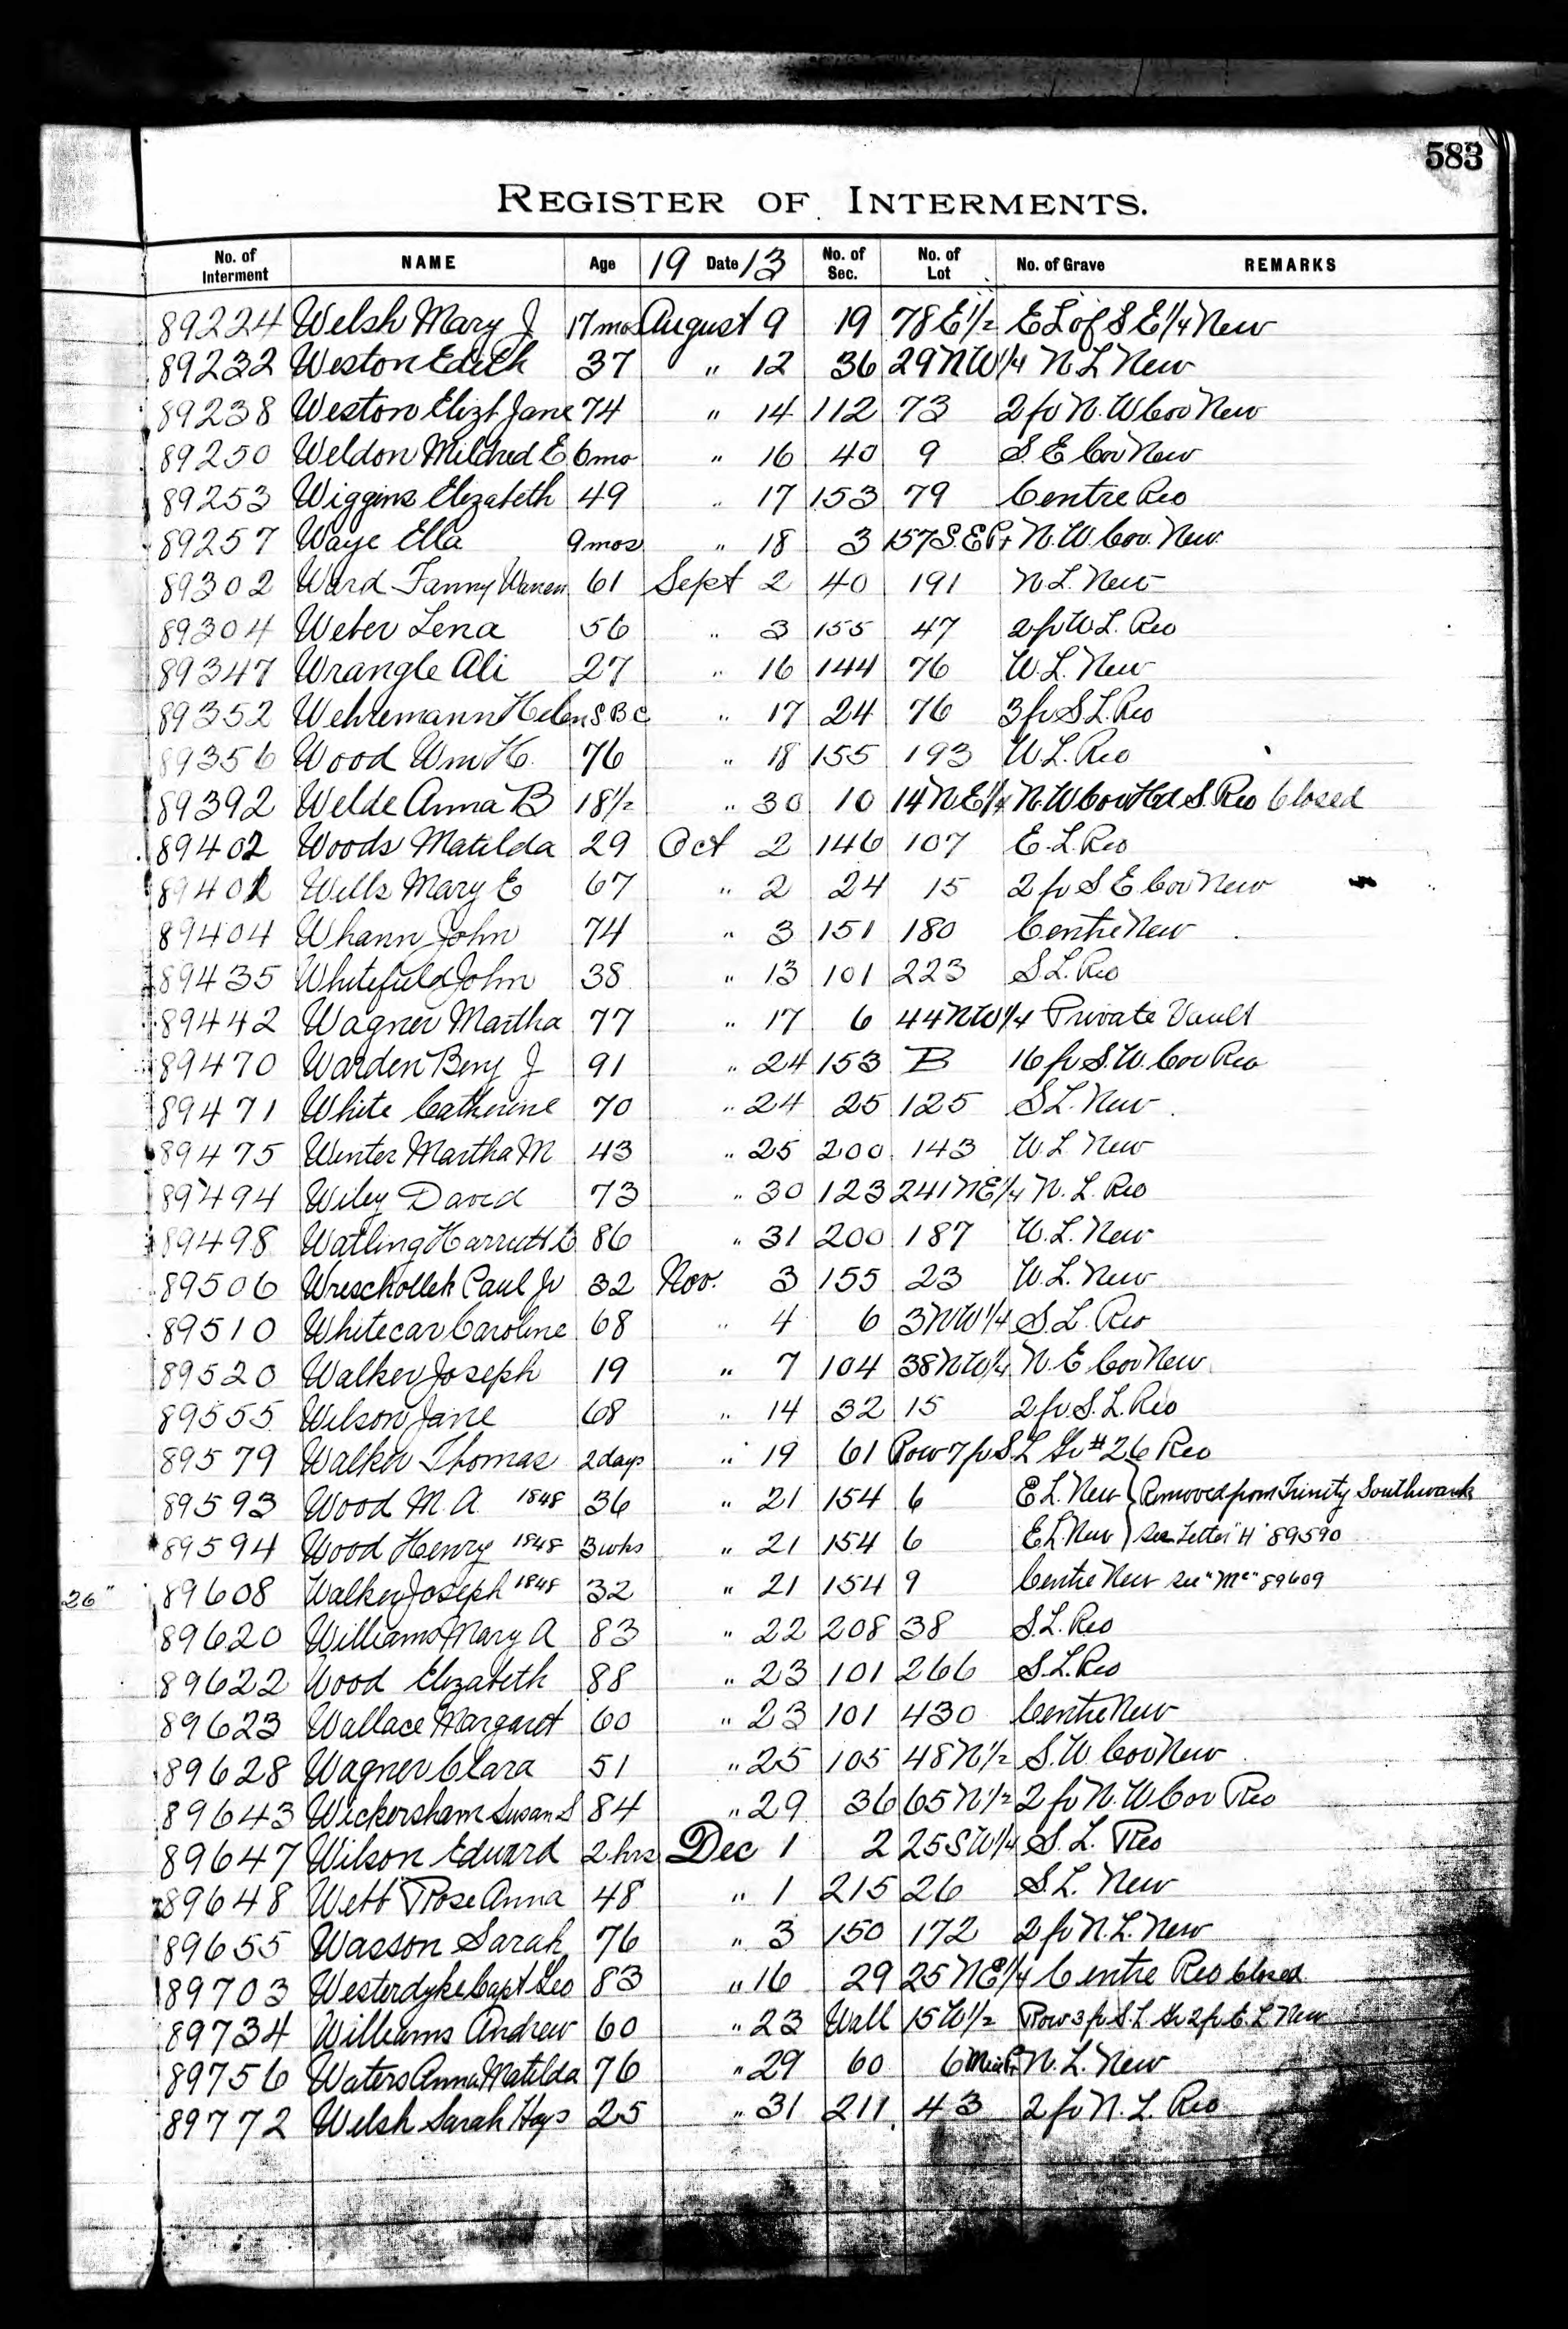 583
REGISTER OF INTERMENTS.
No. of Interment NAME Age 19 Date 13 No. of Sec. No. of Lot No. of Grave REMARKS
89224 Welsh Mary J 17 mos August 9 19 78 E 1/2 E L of S E 1/4 New
89232 Weston Edith 37 " 12 36 29 N W 1/4 N L New
89238 Weston Elizt Jane 74 " 14 112 73 2 fr N. W Cor New
89250 Weldon Mildred E 6 mo " 16 40 9 S. E Cor New
89253 Wiggins Elizabeth 49 " 17 153 79 Centre Reo
89257 Waye Ella 9 mos " 18 3 157 S. E Pt N. W. Cor. New
89302 Ward Fanny Warren 61 Sept 2 40 191 N L. New
89304 Weber Lena 56 " 3 155 47 2 fr W L. Reo
89347 Wrangle Ali 27 " 16 144 76 W. L. New
89352 Wehremann Helen S B C " 17 24 76 3 fr S L. Reo
89356 Wood Wm H. 76 " 18 155 193 W L. Reo
89392 Welde Anna B 18 1/2 " 30 10 14 N E 1/4 N. W Cor Hd S. Reo Closed
89402 Woods Matilda 29 Oct 2 146 107 E. L. Reo
89401 Wells Mary E 67 " 2 24 15 2 fr S E Cor New
89404 Whann John 74 " 3 151 180 Centre New
89435 Whitefield John 38 " 13 101 223 S L. Reo
89442 Wagner Martha 77 " 17 6 44 N W 1/4 Private Vault
89470 Warden Benj J 91 " 24 153 B 16 fr S. W. Cor Reo
89471 White Catherine 70 " 24 25 125 S L. New
89475 Wenter Martha M 43 " 25 200 143 W. L. New
89494 Wiley David 73 " 30 123 241 N E 1/4 N. L. Reo
89498 Watling 86 " 31 200 187 W. L. New
89506 Paul Jr 32 Nov. 3 155 23 W. L. New
89510 Whitecar Caroline 68 " 4 6 3 N W 1/4 S. L. Reo
89520 Walker Joseph 19 " 7 104 38 N W 1/4 N. E Cor New
89555 Wilson Jane 68 " 14 32 15 2 fr S. L. Reo
89579 Walker Thomas 2 days " 19 61 Row 7 fr S. L Gr # 26 Reo
89593 Wood M. A 1848 36 " 21 154 6 E L. New } Removed from Trinity Southwark
89594 Wood Henry 1848 3 wks " 21 154 6 E L New } See Letter "H" 89590
26" 89608 Walker Joseph 1848 32 " 21 154 9 Centre New See "Mc" 89609
89620 Williams Mary A 83 " 22 208 38 S. L. Reo
89622 Wood Elizabeth 88 " 23 101 266 S. L. Reo
89623 Wallace Margaret 60 " 23 101 430 Centre New
89628 Wagner Clara 51 " 25 105 48 N 1/2 S. W Cor New
89643 Wickersham Susan S 84 " 29 36 65 N 1/2 2 fr N. W. Cor Reo
89647 Wilson Edward 2 hrs Dec 1 2 25 S W 1/4 S. L. Reo
89648 Webb Rose Anna 48 " 1 215 26 S. L. New
89655 Wasson Sarah 76 " 3 150 172 2 fr N. L. New
89703 Westerdyke Capt Geo 83 " 16 29 25 N E 1/4 Centre Reo Closed
89734 Williams Andrew 60 " 23 Wall 15 W 1/2 Row 3 fr S. L. Gr 2 fr E. L New
89756 Waters Anna Matilda 76 " 29 60 6 N. L. New
89772 Welsh Sarah Hays 25 " 31 211 43 2 fr N. L. Reo